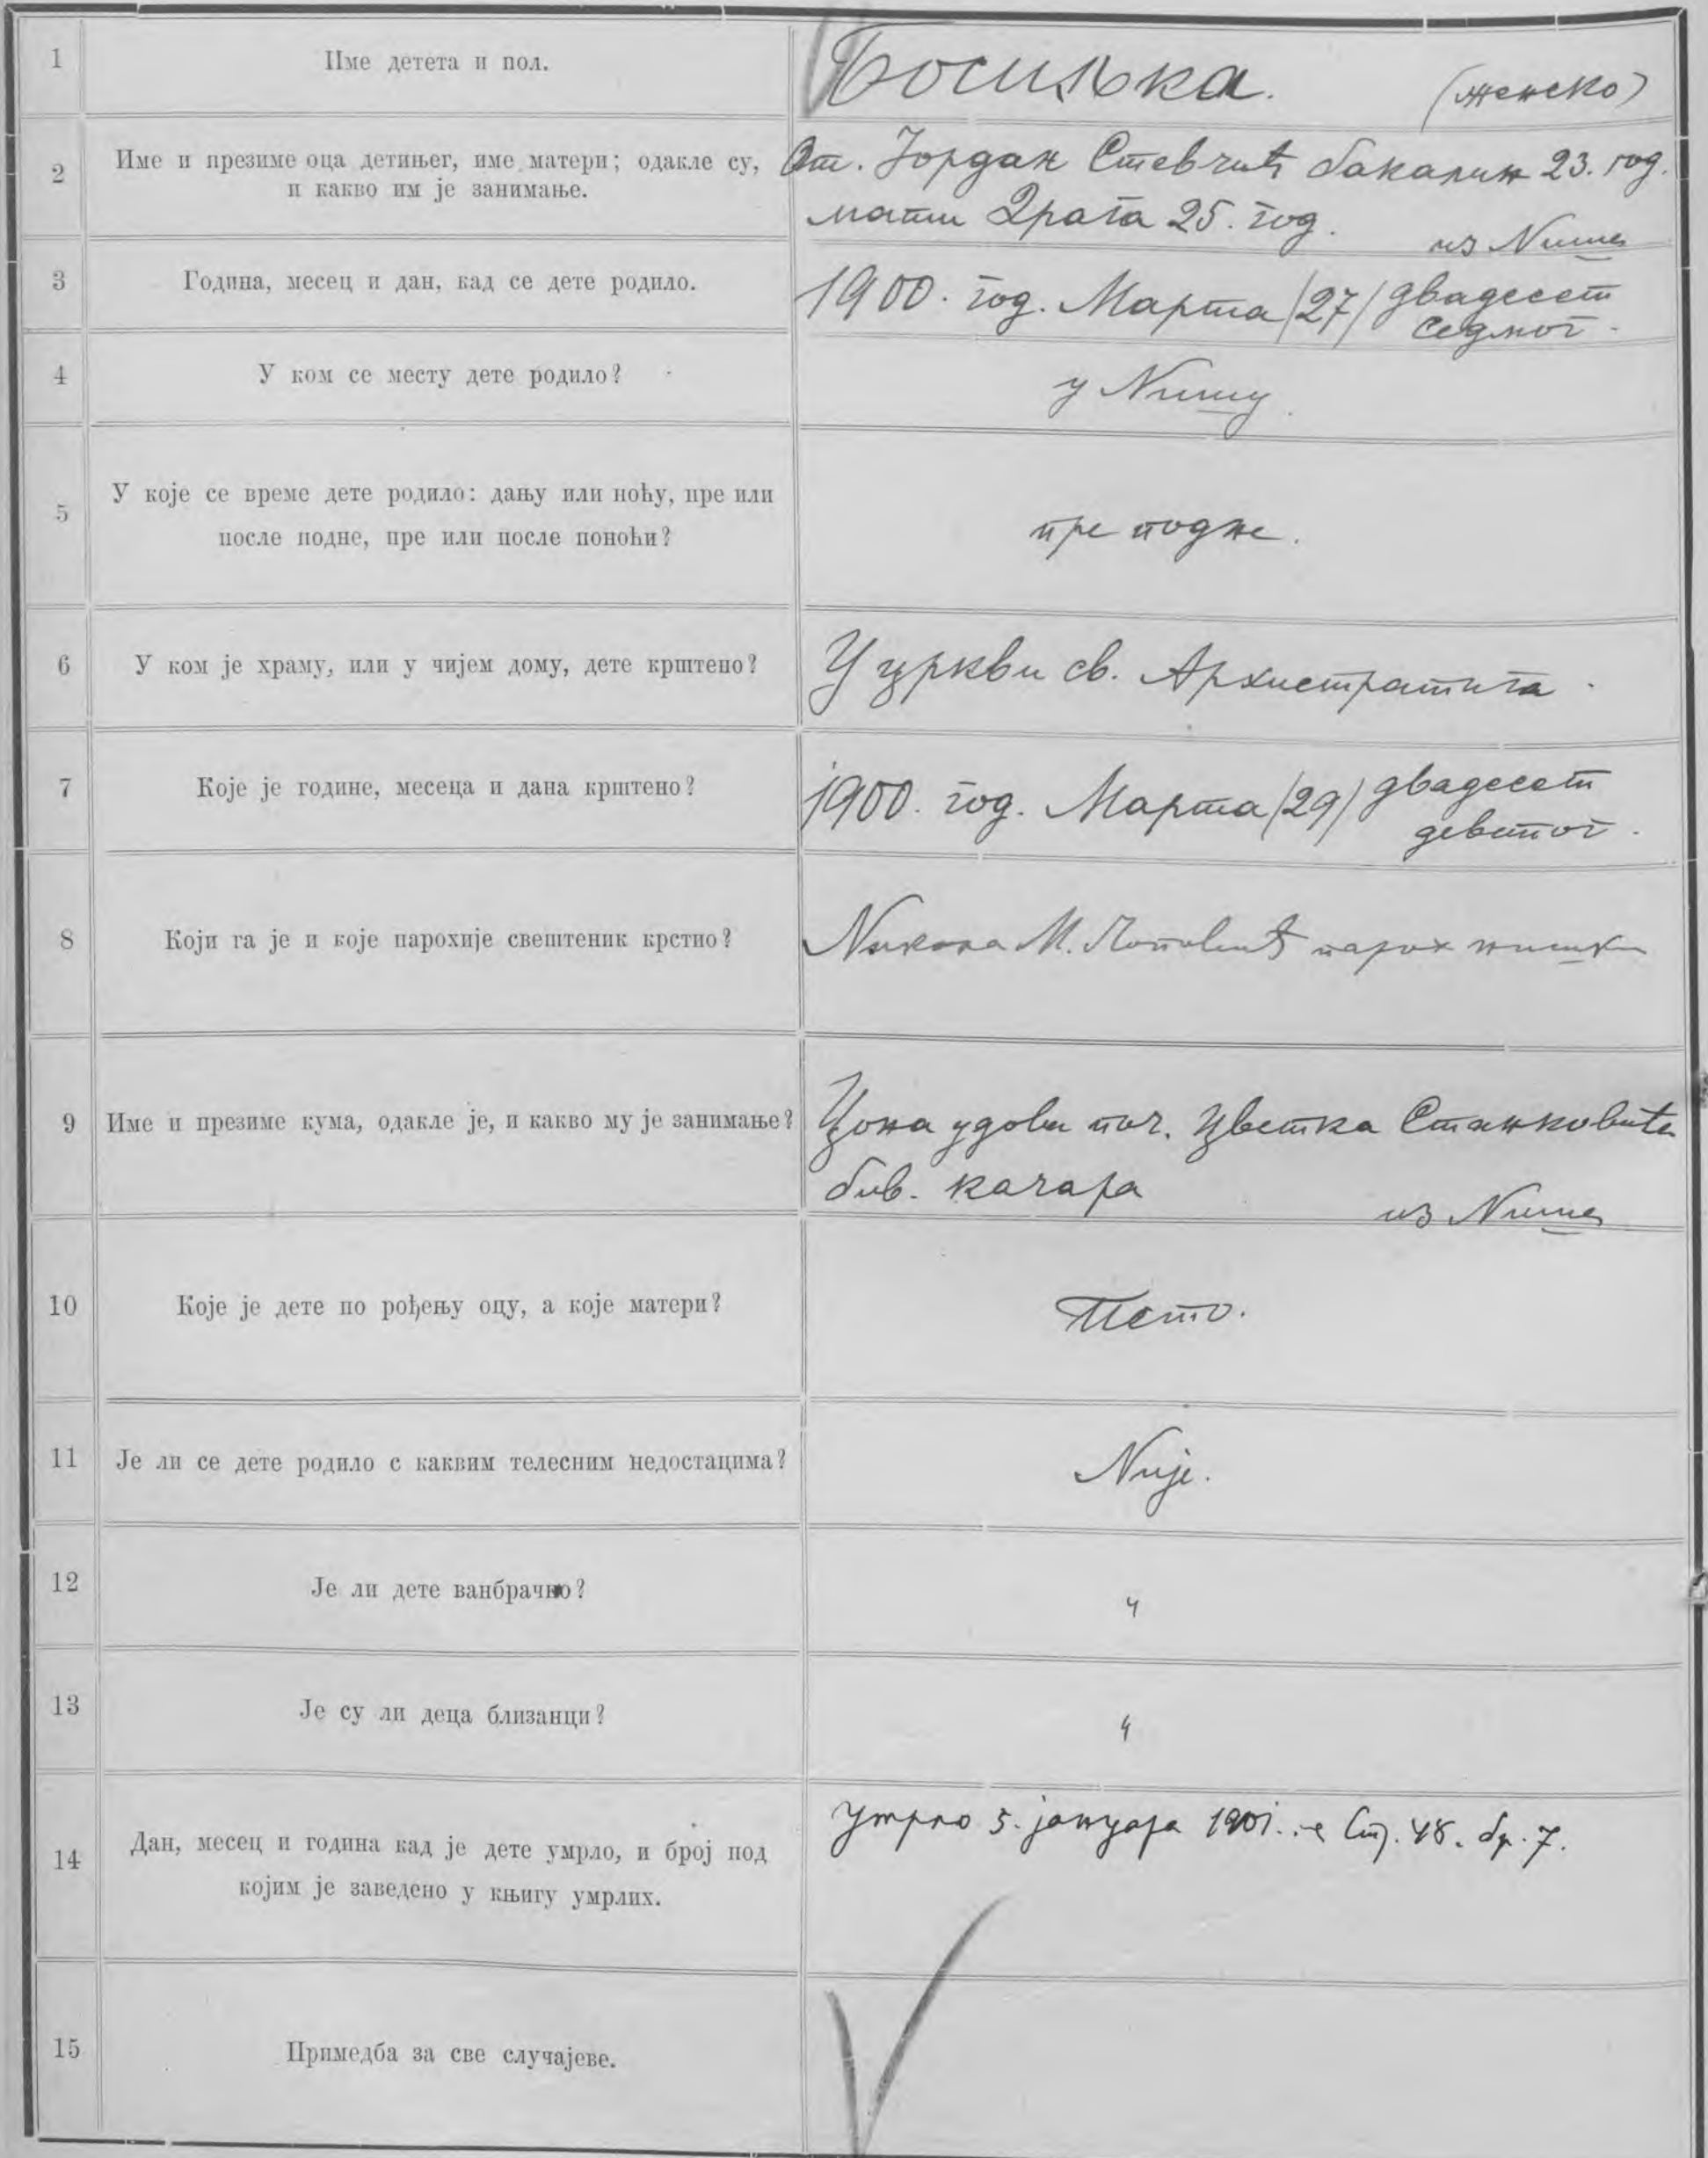 1
Име детета и пол.
Босиљка. (женско)
2
Име и презиме оца детињег, име матери; одакле су,
и какво им је занимање.
От. Јордан Стевчић бакалин 23. год.
мати Драга 25. год. из Ниша
3
Година, месец и дан, кад се дете родило.
1900. год. Марта /27/ двадесет
седмог.
4
У ком се месту дете родило?
у Нишу.
5
У које се време дете родило: дању или ноћу, пре или
после подне, пре или после поноћи?
пре подне.
6
У ком је храму, или у чијем дому, дете крштено?
У цркви св. Архистратига.
7
Које је године, месеца и дана крштено?
1900. год. Марта /29/ двадесет
деветог.
8
Који га је и које парохије свештеник крстио?
Никола М. Поповић парох нишки
9
Име и презиме кума, одакле је, и какво му је занимање?
Цона удови поч. Цветка Станковића
бив. качара из Ниша
10
Које је дете по рођењу оцу, а које матери?
Пето.
11
Је ли се дете родило с каквим телесним недостацима?
Није.
12
Је ли дете ванбрачно?
"
13
Је су ли деца близанци?
"
14
Дан, месец и година кад је дете умрло, и број под
којим је заведено у књигу умрлих.
Умрло 5. јануара 1901. Стр. 48. бр. 7.
15
Примедба за све случајеве.